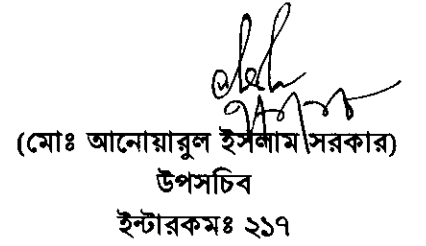 (মোঃ আনোয়ারুল ইসলাম সরকার)
উপসচিব
ইন্টারকমঃ ২১৭